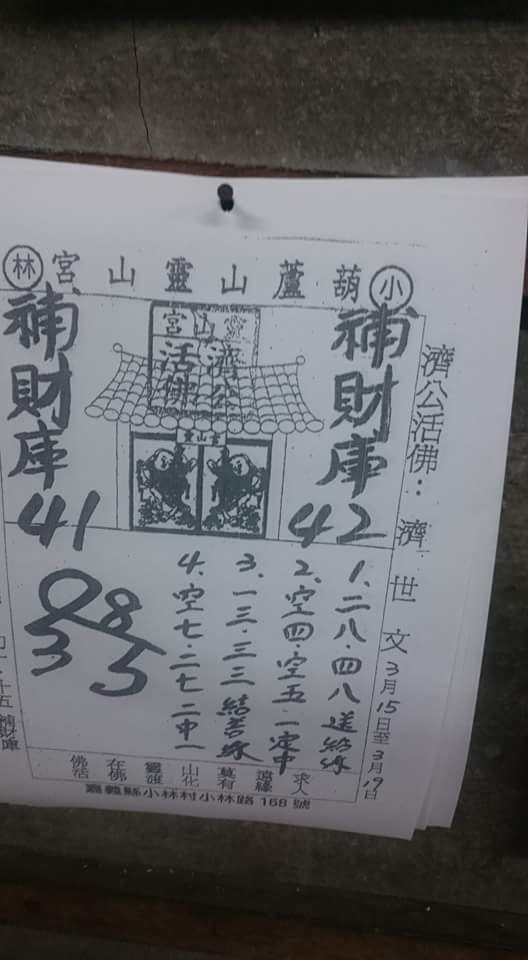 小葫蘆山靈山宮林
補財庫
42
濟公活佛
靈山宮
靈山宮
補財庫
41
濟公活佛：濟世文3月15日至3月19日
1、二八・四八送給你
2、空四・空五・一定中
3、一三・三三結善緣
4、空七・二七二中一
08
33
求人
遠緣
莫有
山化
靈渡
在佛
佛活
嘉義縣小林村小林路168號
十五補財庫